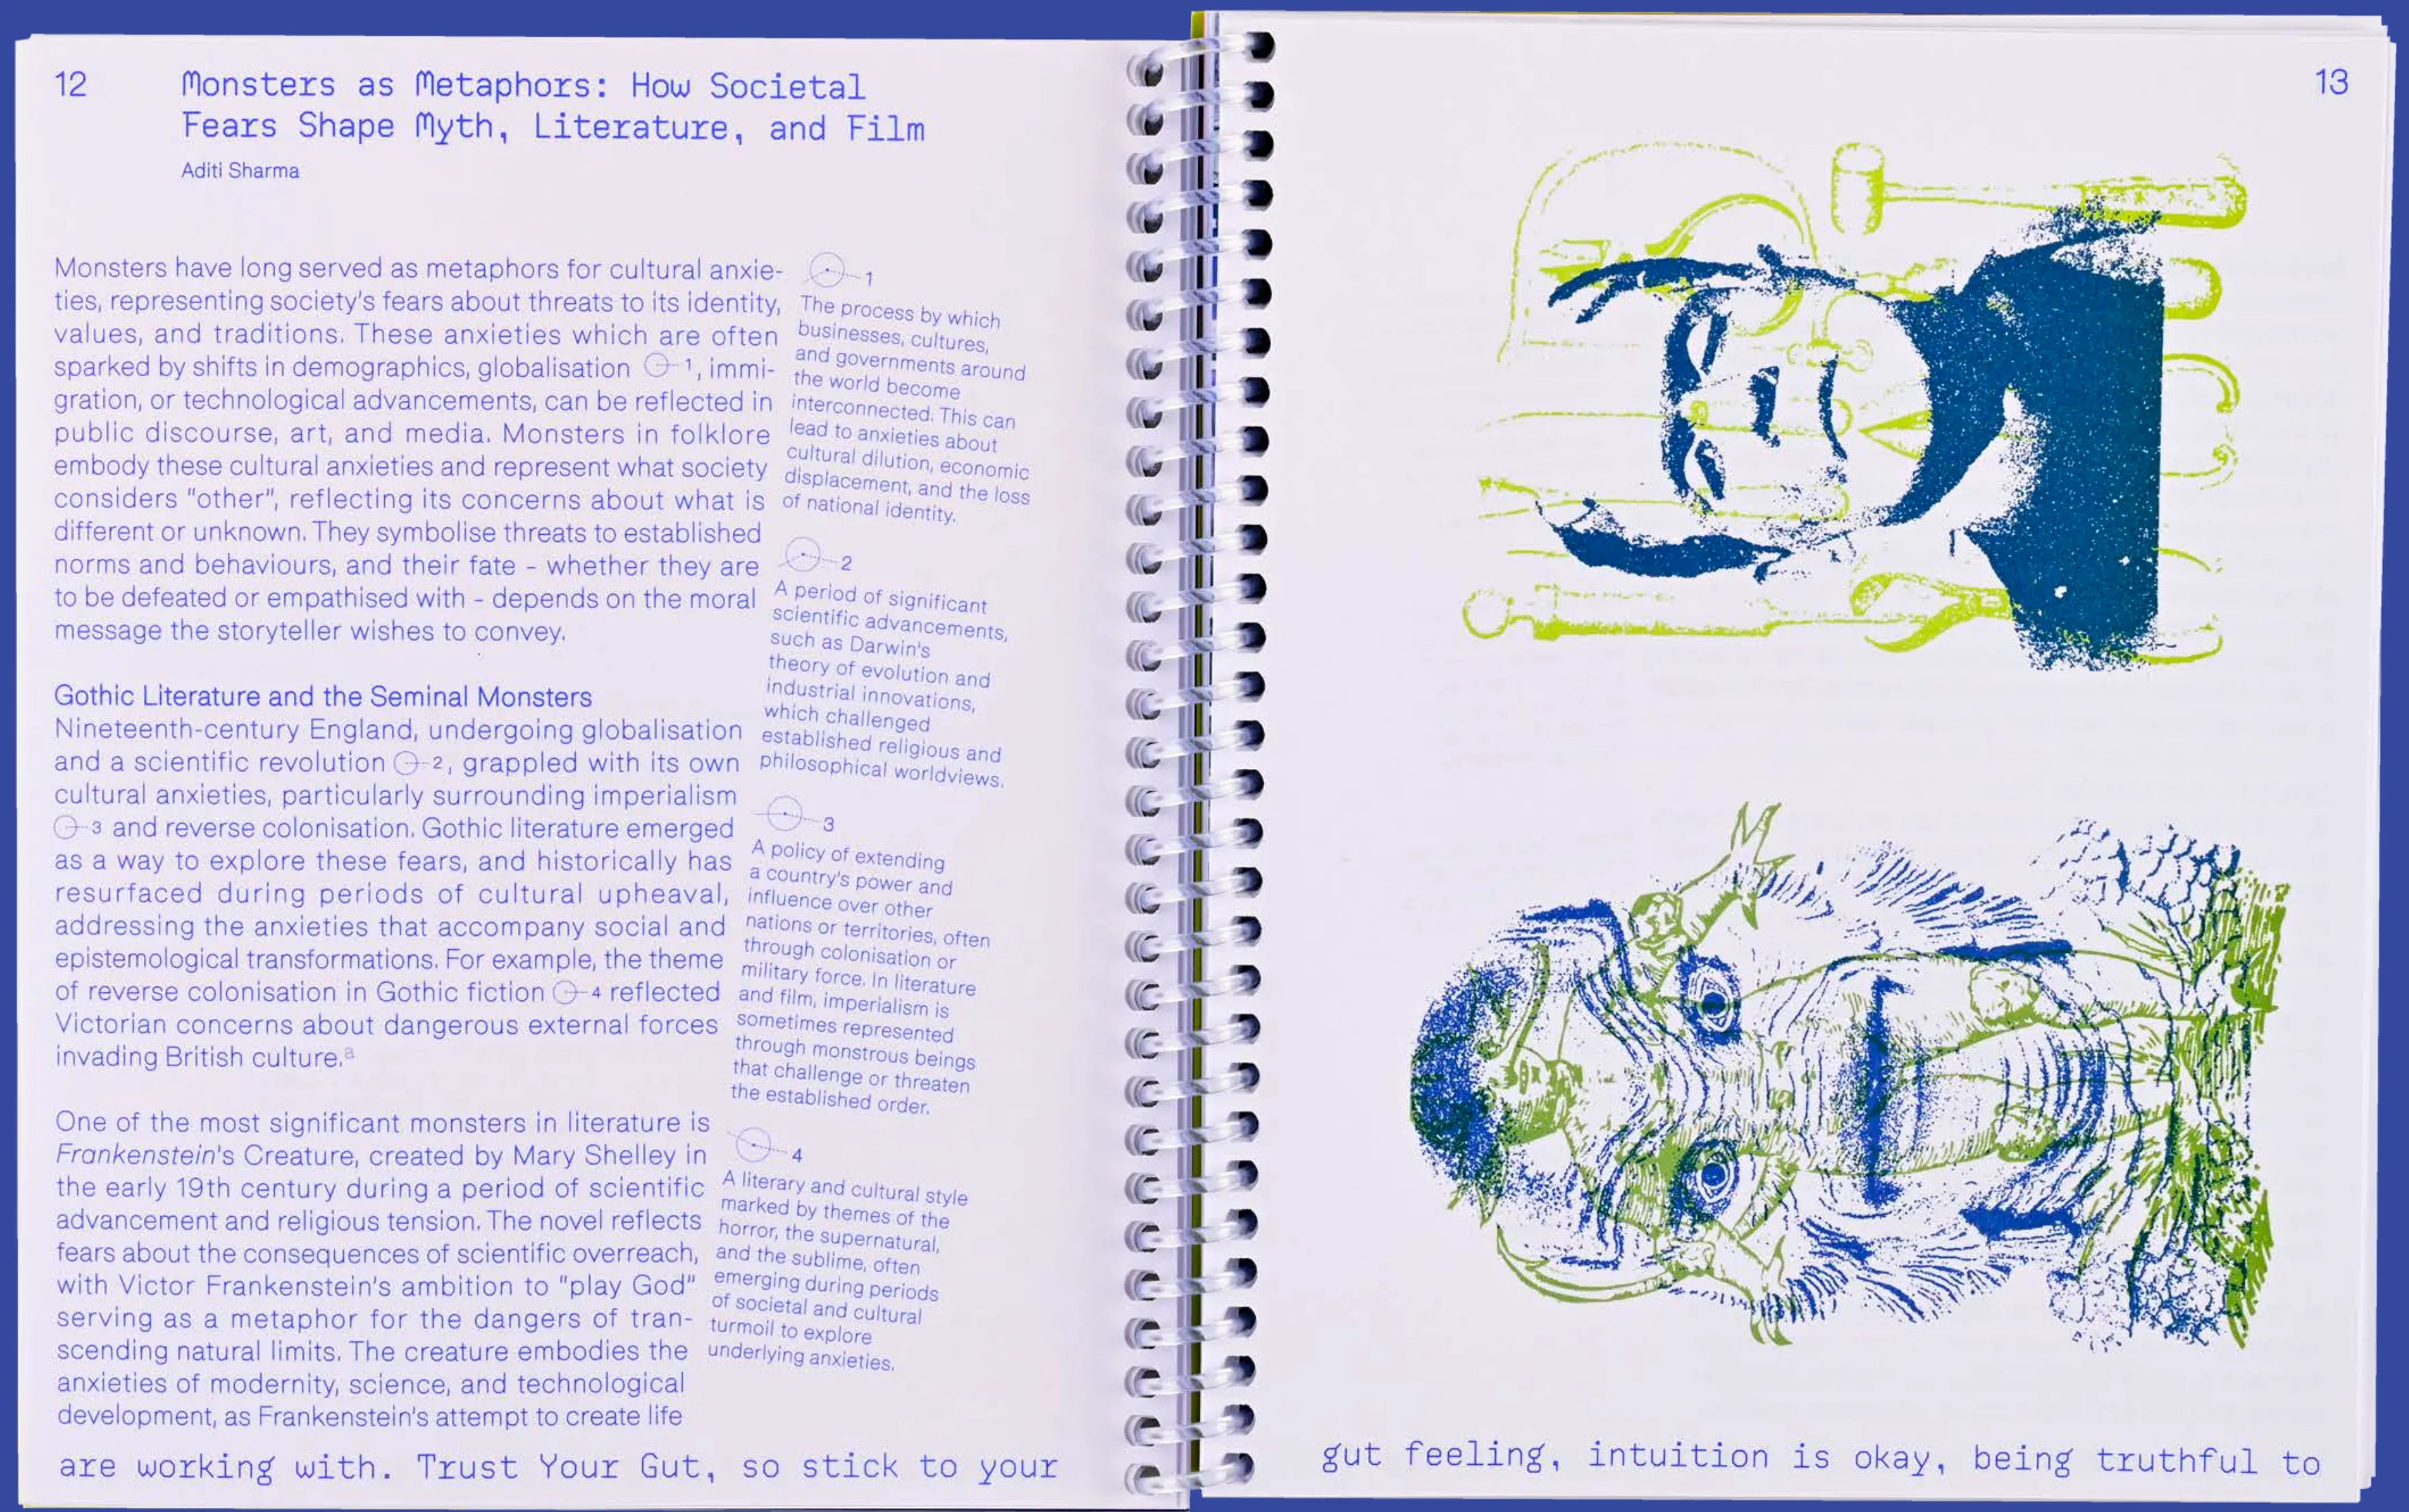 12
Monsters as Metaphors: How Societal
Fears Shape Myth, Literature, and Film
Aditi Sharma
Monsters have long served as metaphors for cultural anxie-
ties, representing society's fears about threats to its identity,
values, and traditions. These anxieties which are often
sparked by shifts in demographics, globalisation 1, immi-
gration, or technological advancements, can be reflected in
public discourse, art, and media. Monsters in folklore
embody these cultural anxieties and represent what society
considers "other", reflecting its concerns about what is
different or unknown. They symbolise threats to established
norms and behaviours, and their fate – whether they are
to be defeated or empathised with – depends on the moral
message the storyteller wishes to convey.
Gothic Literature and the Seminal Monsters
Nineteenth-century England, undergoing globalisation
and a scientific revolution 2, grappled with its own
cultural anxieties, particularly surrounding imperialism
3 and reverse colonisation. Gothic literature emerged
as a way to explore these fears, and historically has
resurfaced during periods of cultural upheaval,
addressing the anxieties that accompany social and
epistemological transformations. For example, the theme
of reverse colonisation in Gothic fiction 4 reflected
Victorian concerns about dangerous external forces
invading British culture.a
One of the most significant monsters in literature is
Frankenstein's Creature, created by Mary Shelley in
the early 19th century during a period of scientific
advancement and religious tension. The novel reflects
fears about the consequences of scientific overreach,
with Victor Frankenstein's ambition to "play God"
serving as a metaphor for the dangers of tran-
scending natural limits. The creature embodies the
anxieties of modernity, science, and technological
development, as Frankenstein's attempt to create life
1
The process by which
businesses, cultures,
and governments around
the world become
interconnected. This can
lead to anxieties about
cultural dilution, economic
displacement, and the loss
of national identity.
2
A period of significant
scientific advancements,
such as Darwin's
theory of evolution and
industrial innovations,
which challenged
established religious and
philosophical worldviews.
3
A policy of extending
a country's power and
influence over other
nations or territories, often
through colonisation or
military force. In literature
and film, imperialism is
sometimes represented
through monstrous beings
that challenge or threaten
the established order.
4
A literary and cultural style
marked by themes of the
horror, the supernatural,
and the sublime, often
emerging during periods
of societal and cultural
turmoil to explore
underlying anxieties.
are working with. Trust Your Gut, so stick to your
13
gut feeling, intuition is okay, being truthful to